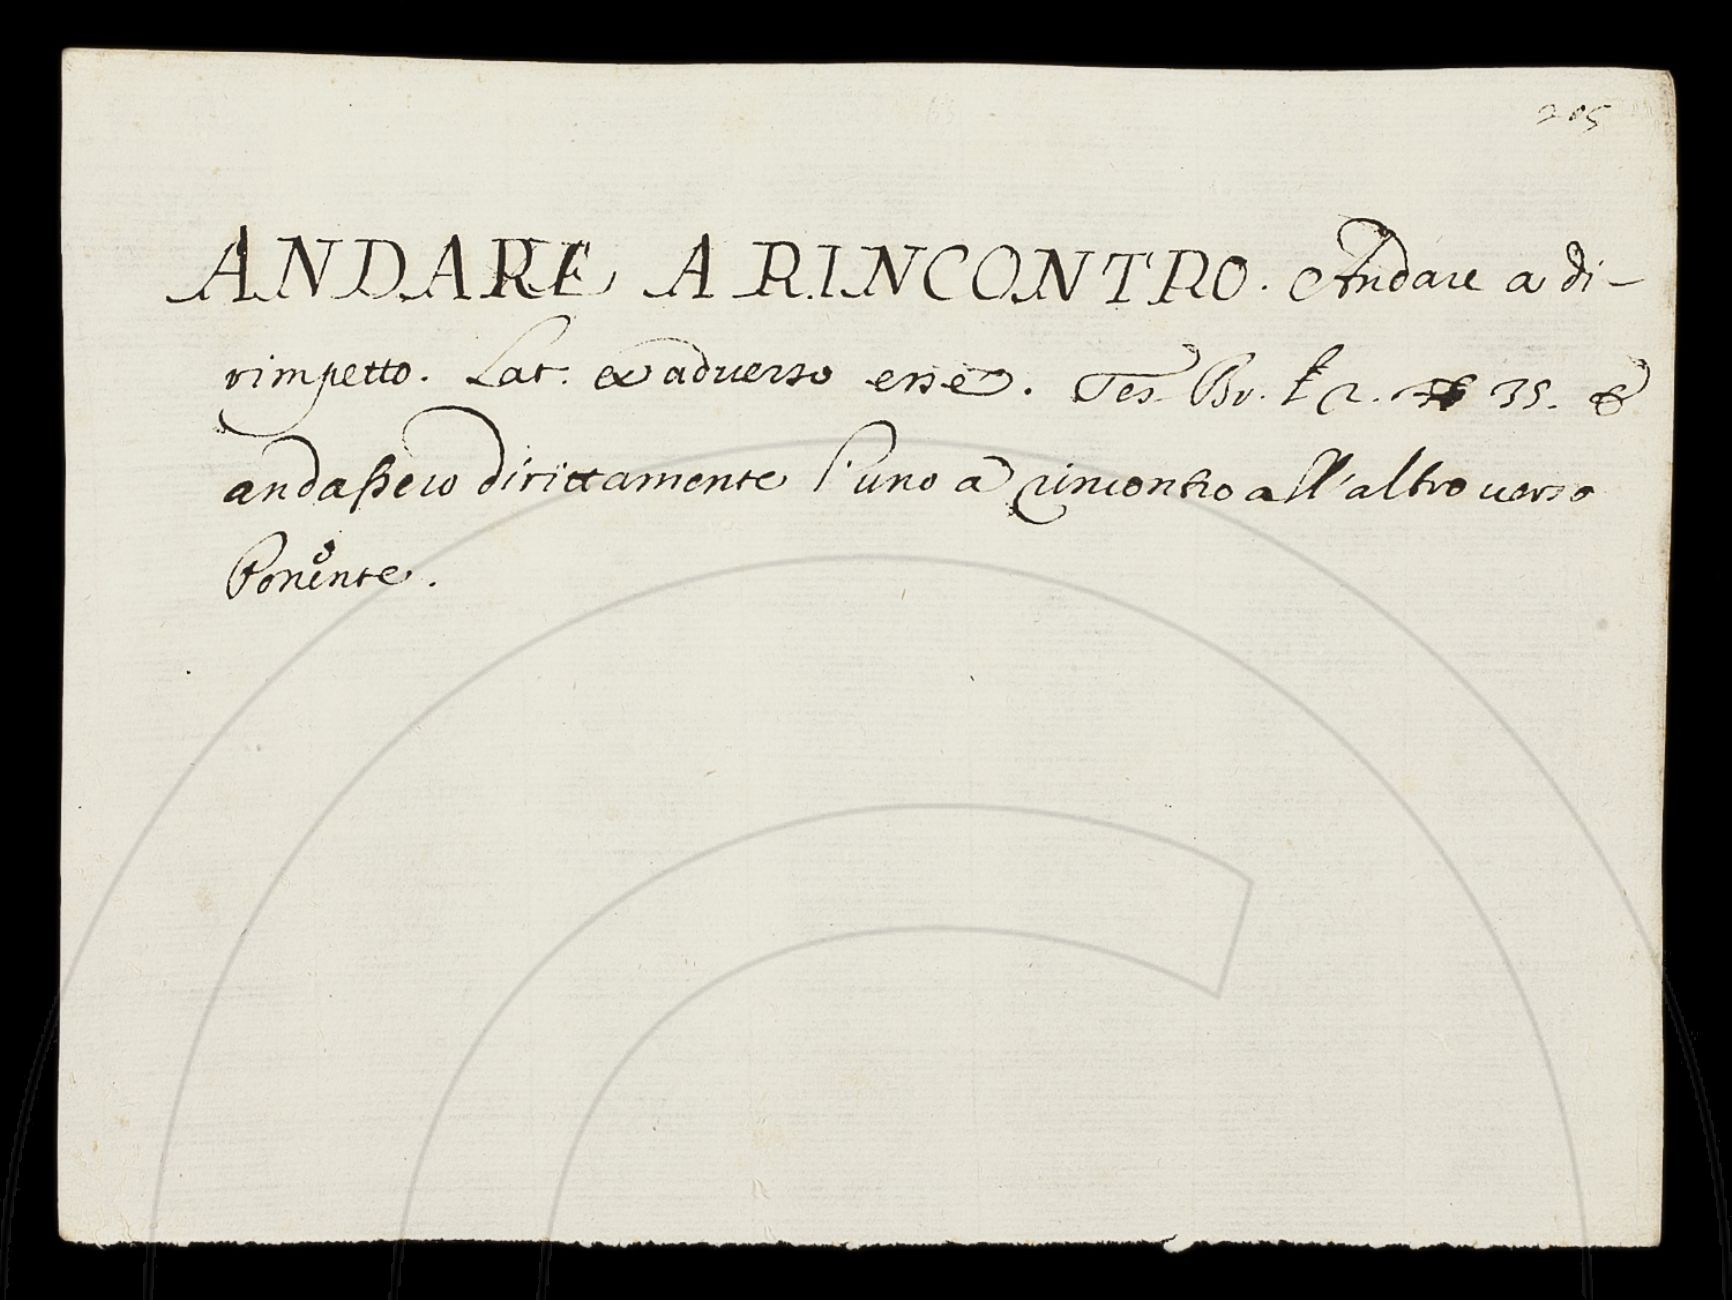 205
ANDARE A RINCONTRO. Andare a di-
rimpetto. Lat. ex adverso esse. Tes. Br. l. 2. 35. E
andaßero dirittamente l'uno a rincontro all'altro verso
Ponente.